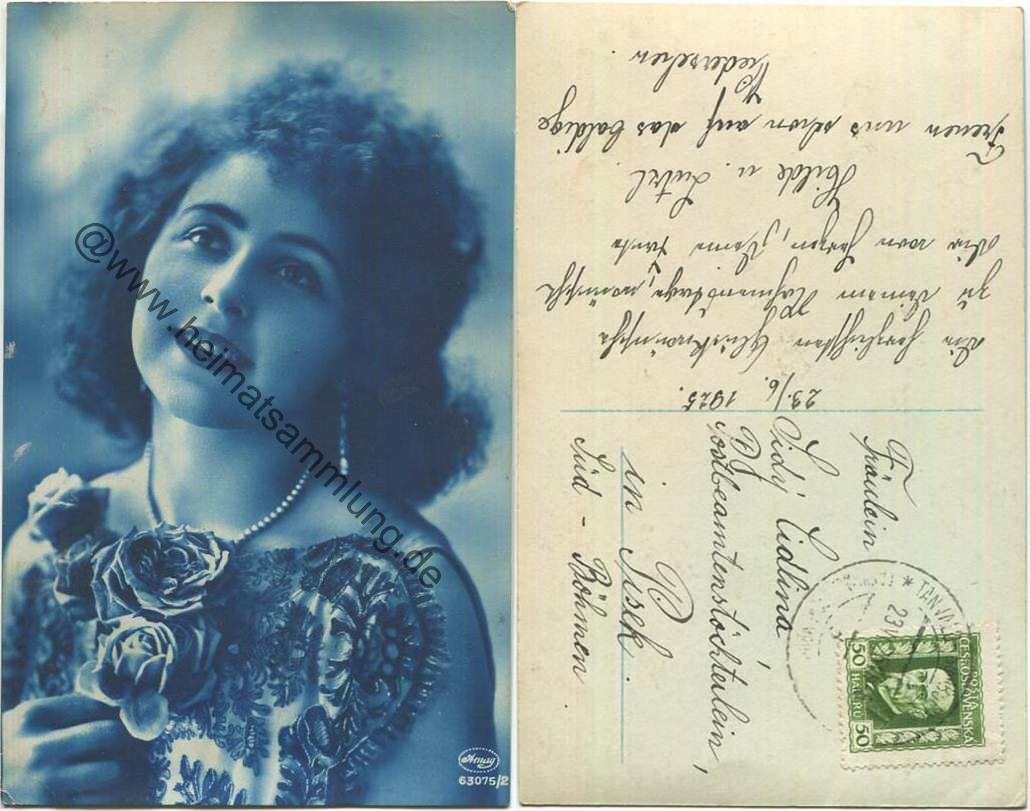 @www.heimatsammlung.de
Amag
63075/2
23./6. 1925.
Die herzlichsten Glückwünsche
zu Deinem Namenstage, wünscht
Dir von Herzen, Deine
Hilde u. Lutzl
Freuen uns schon auf das baldige
Wiedersehen.
Fräulein
Sidy Cidlina
Postbeamtenstöchterlein,
in Pisek.
Süd - Böhmen
* TANVALD
23
POŠTA
ČESKOSLOVENSKÁ
50 HALÉŘŮ 50